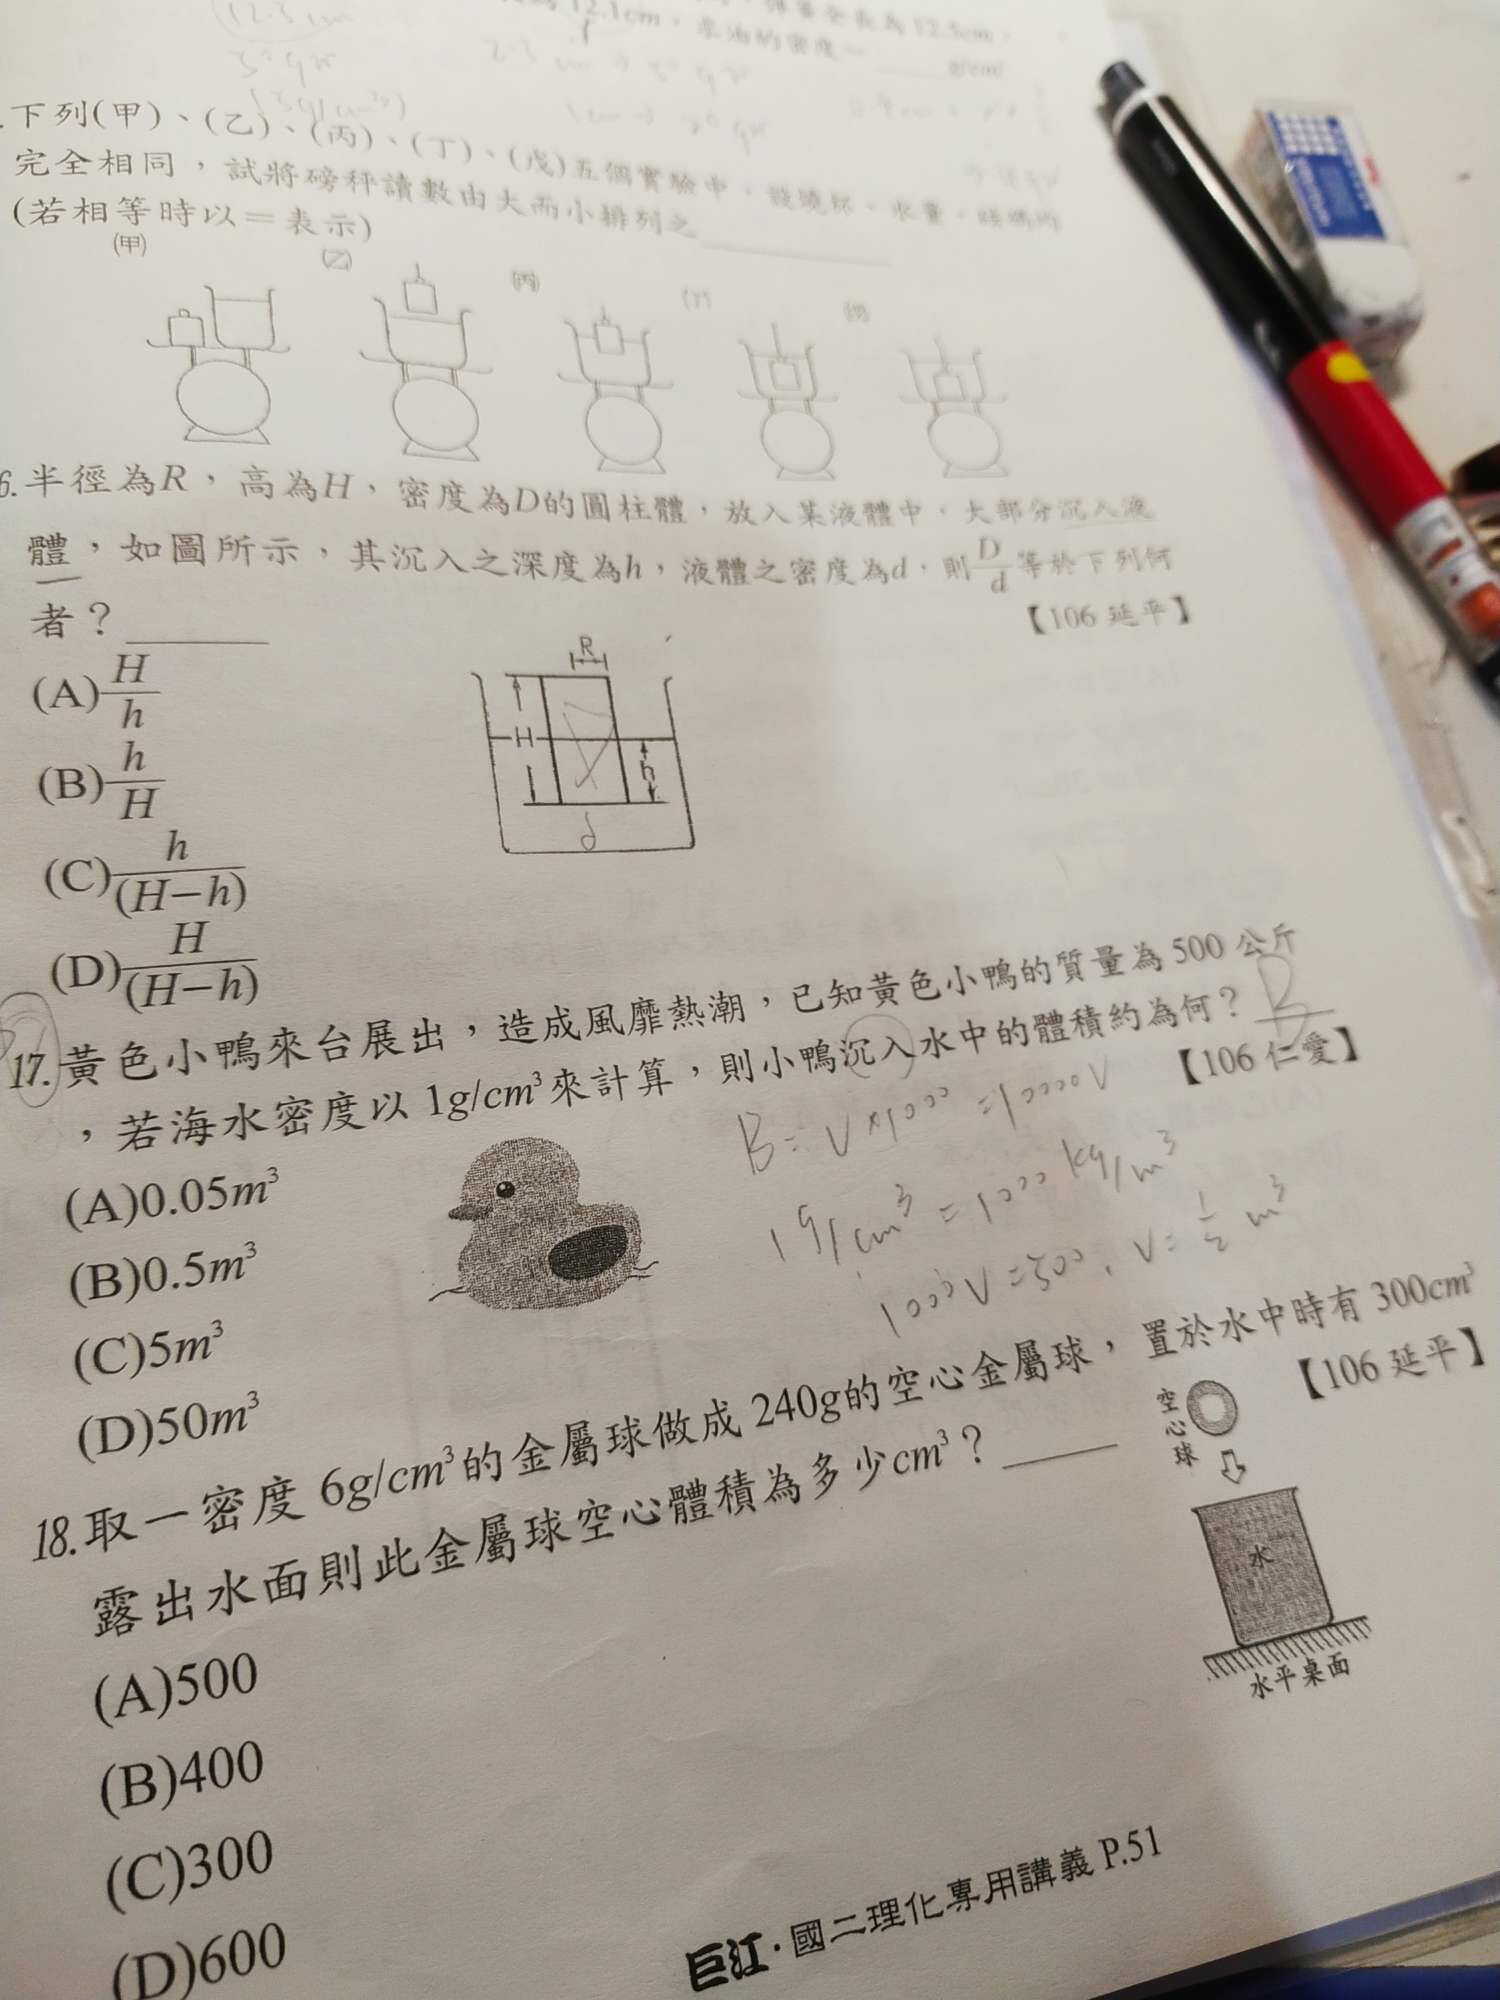 (12.3 cm
12.1cm,
彈簧全長為12.5cm,
求油的密度=
g/cm³
50 gw
2.3 cm → 50 gw
(3g/cm³)
1cm → 20 gw
.下列(甲)、(乙)、(丙)、(丁)、(戊)五個實驗中,設燒杯、水量、砝碼均
完全相同,試將磅秤讀數由大而小排列之
(若相等時以=表示)
(甲)
(乙)
(丙)
(丁)
(戊)
6.半徑為R,高為H,密度為D的圓柱體,放入某液體中,大部分沉入液
體,如圖所示,其沉入之深度為h,液體之密度為d,則D/d等於下列何
者?
【106 延平】
(A)H/h
(B)h/H
(C)h/(H−h)
(D)H/(H−h)
R
H
h
d
17.黃色小鴨來台展出,造成風靡熱潮,已知黃色小鴨的質量為500公斤
,若海水密度以1g/cm³來計算,則小鴨沉入水中的體積約為何?
B
【106 仁愛】
(A)0.05m³
(B)0.5m³
(C)5m³
(D)50m³
B=V×1000=10000V
1g/cm³=1000kg/m³
1000V=500, V=1/2 m³
18.取一密度6g/cm³的金屬球做成240g的空心金屬球,置於水中時有300cm³
露出水面則此金屬球空心體積為多少cm³?
【106 延平】
(A)500
(B)400
(C)300
(D)600
空心球
水
水平桌面
巨江·國二理化專用講義 P.51